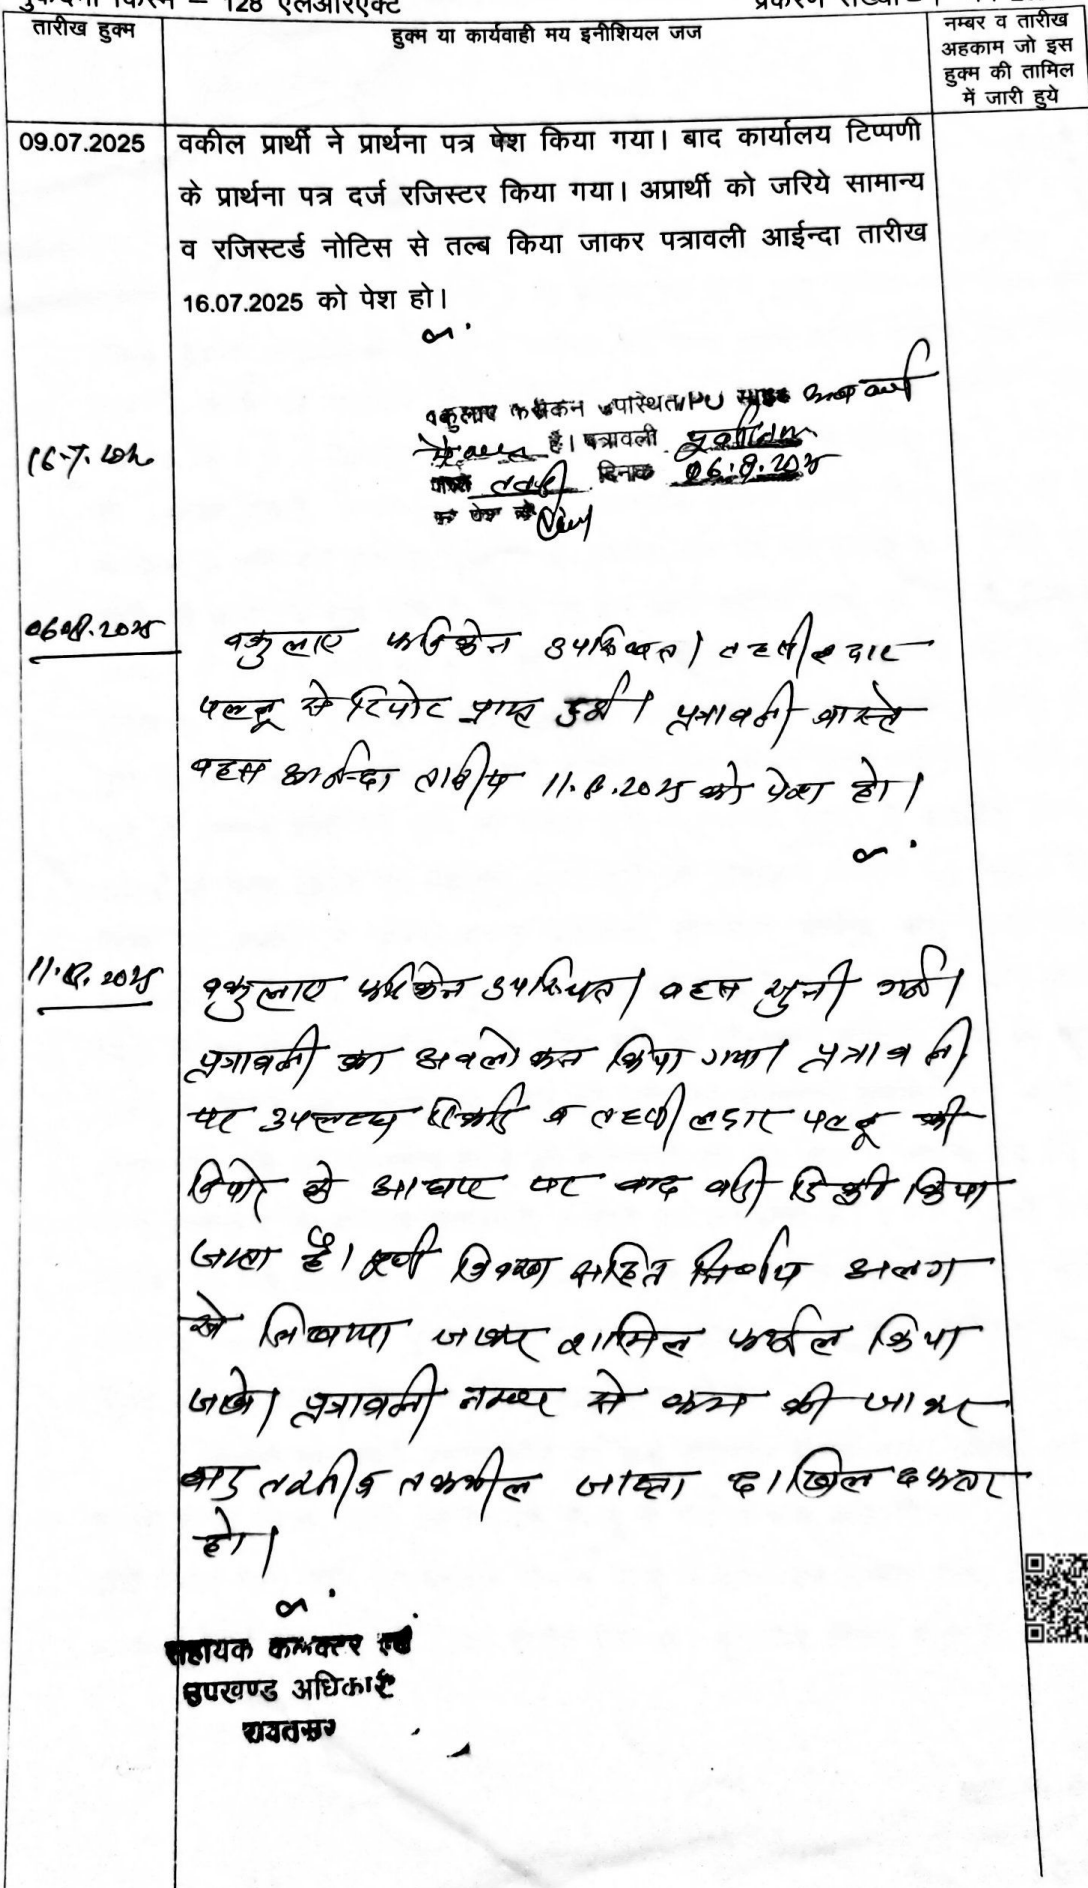 128 एलआरएक्ट
तारीख हुक्म
हुक्म या कार्यवाही मय इनीशियल जज
नम्बर व तारीख
अहकाम जो इस
हुक्म की तामिल
में जारी हुये
09.07.2025
वकील प्रार्थी ने प्रार्थना पत्र पेश किया गया। बाद कार्यालय टिप्पणी
के प्रार्थना पत्र दर्ज रजिस्टर किया गया। अप्रार्थी को जरिये सामान्य
व रजिस्टर्ड नोटिस से तल्ब किया जाकर पत्रावली आईन्दा तारीख
16.07.2025 को पेश हो।
वकुलाए फरिकेन उपस्थित
है। पत्रावली
दिनांक 06.8.2025
को पेश हो
06.08.2025
वकुलाए फरिकेन उपस्थित। तहसीलदार
पल्लू से रिपोर्ट प्राप्त हुई। पत्रावली वास्ते
बहस आईन्दा तारीख 11.8.2025 को पेश हो।
11.8.2025
वकुलाए फरिकेन उपस्थित। बहस सुनी गई।
पत्रावली का अवलोकन किया गया। पत्रावली
पर उपलब्ध रिकॉर्ड व तहसीलदार पल्लू की
रिपोर्ट के आधार पर वाद वादी डिक्री किया
जाता है। पूर्ण विवरण सहित निर्णय अलग
से लिखाया जाकर शामिल फाईल किया
जावे। पत्रावली नम्बर से कम की जाकर
बाद तरतीब तकमील जाब्ता दाखिल दफ्तर
हो।
सहायक कलक्टर एवं
उपखण्ड अधिकारी
रावतसर